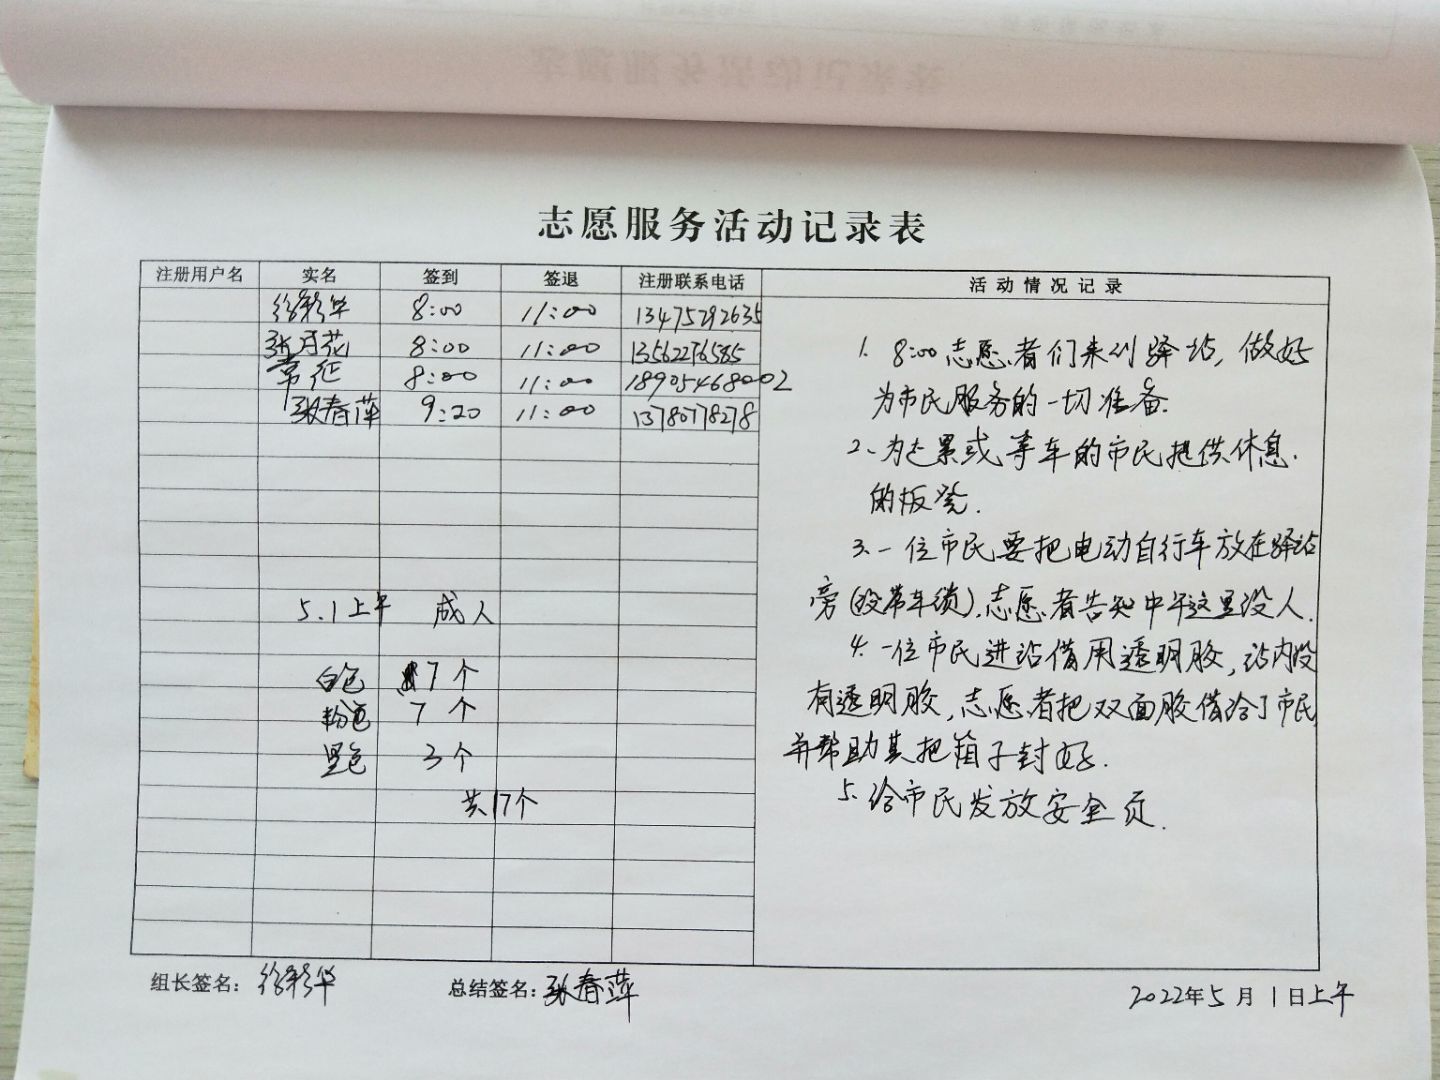 志愿服务活动记录表
注册用户名 实名 签到 签退 注册联系电话 活动情况记录
徐彩华 8:00 11:00 13475292635
张月花 8:00 11:00 13562276585
常征 8:00 11:00 18905468002
张春萍 9:20 11:00 13780778278
5.1上午 成人
白色 17个
粉色 7个
黑色 3个
共17个
1. 8:00志愿者们来到驿站,做好
为市民服务的一切准备.
2、为走累或等车的市民提供休息.
的板凳.
3、一位市民要把电动自行车放在驿站
旁(没带车锁).志愿者告知中午这里没人.
4、一位市民进站借用透明胶,站内没
有透明胶,志愿者把双面胶借给了市民
并帮助其把箱子封好.
5、给市民发放安全页.
组长签名:徐彩华 总结签名:张春萍 2022年5月1日上午